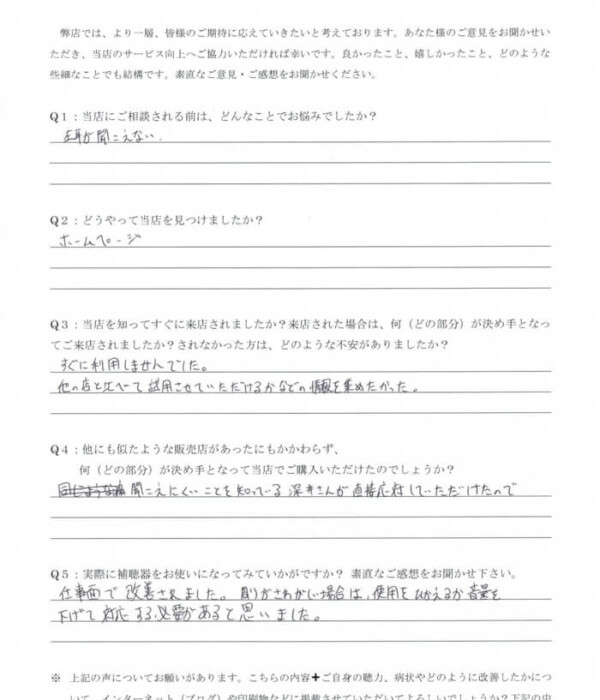 弊店では、より一層、皆様のご期待に応えていきたいと考えております。あなた様のご意見をお聞かせい
ただき、当店のサービス向上へご協力いただければ幸いです。良かったこと、嬉しかったこと、どのような
些細なことでも結構です。素直なご意見・ご感想をお聞かせください。
Q1：当店にご相談される前は、どんなことでお悩みでしたか？
左耳が聞こえない.
Q2：どうやって当店を見つけましたか？
ホームページ
Q3：当店を知ってすぐに来店されましたか？来店された場合は、何（どの部分）が決め手となっ
てご来店されましたか？されなかった方は、どのような不安がありましたか？
すぐに利用しませんでした。
他の店と比べて試用させていただけるかなどの情報を集めたかった。
Q4：他にも似たような販売店があったにもかかわらず、
何（どの部分）が決め手となって当店でご購入いただけたのでしょうか？
聞こえにくいことを知っている深井さんが直接応対していただけたので
Q5：実際に補聴器をお使いになってみていかがですか？ 素直なご感想をお聞かせ下さい。
仕事面で改善されました。周りがさわがしい場合は、使用をひかえるか音量を
下げて対応する必要があると思いました。
※ 上記の声についてお願いがあります。こちらの内容＋ご自身の聴力、病状やどのように改善したかにつ
いて、インターネット（ブログ）や印刷物などに掲載させていただいてよろしいでしょうか？下記の中